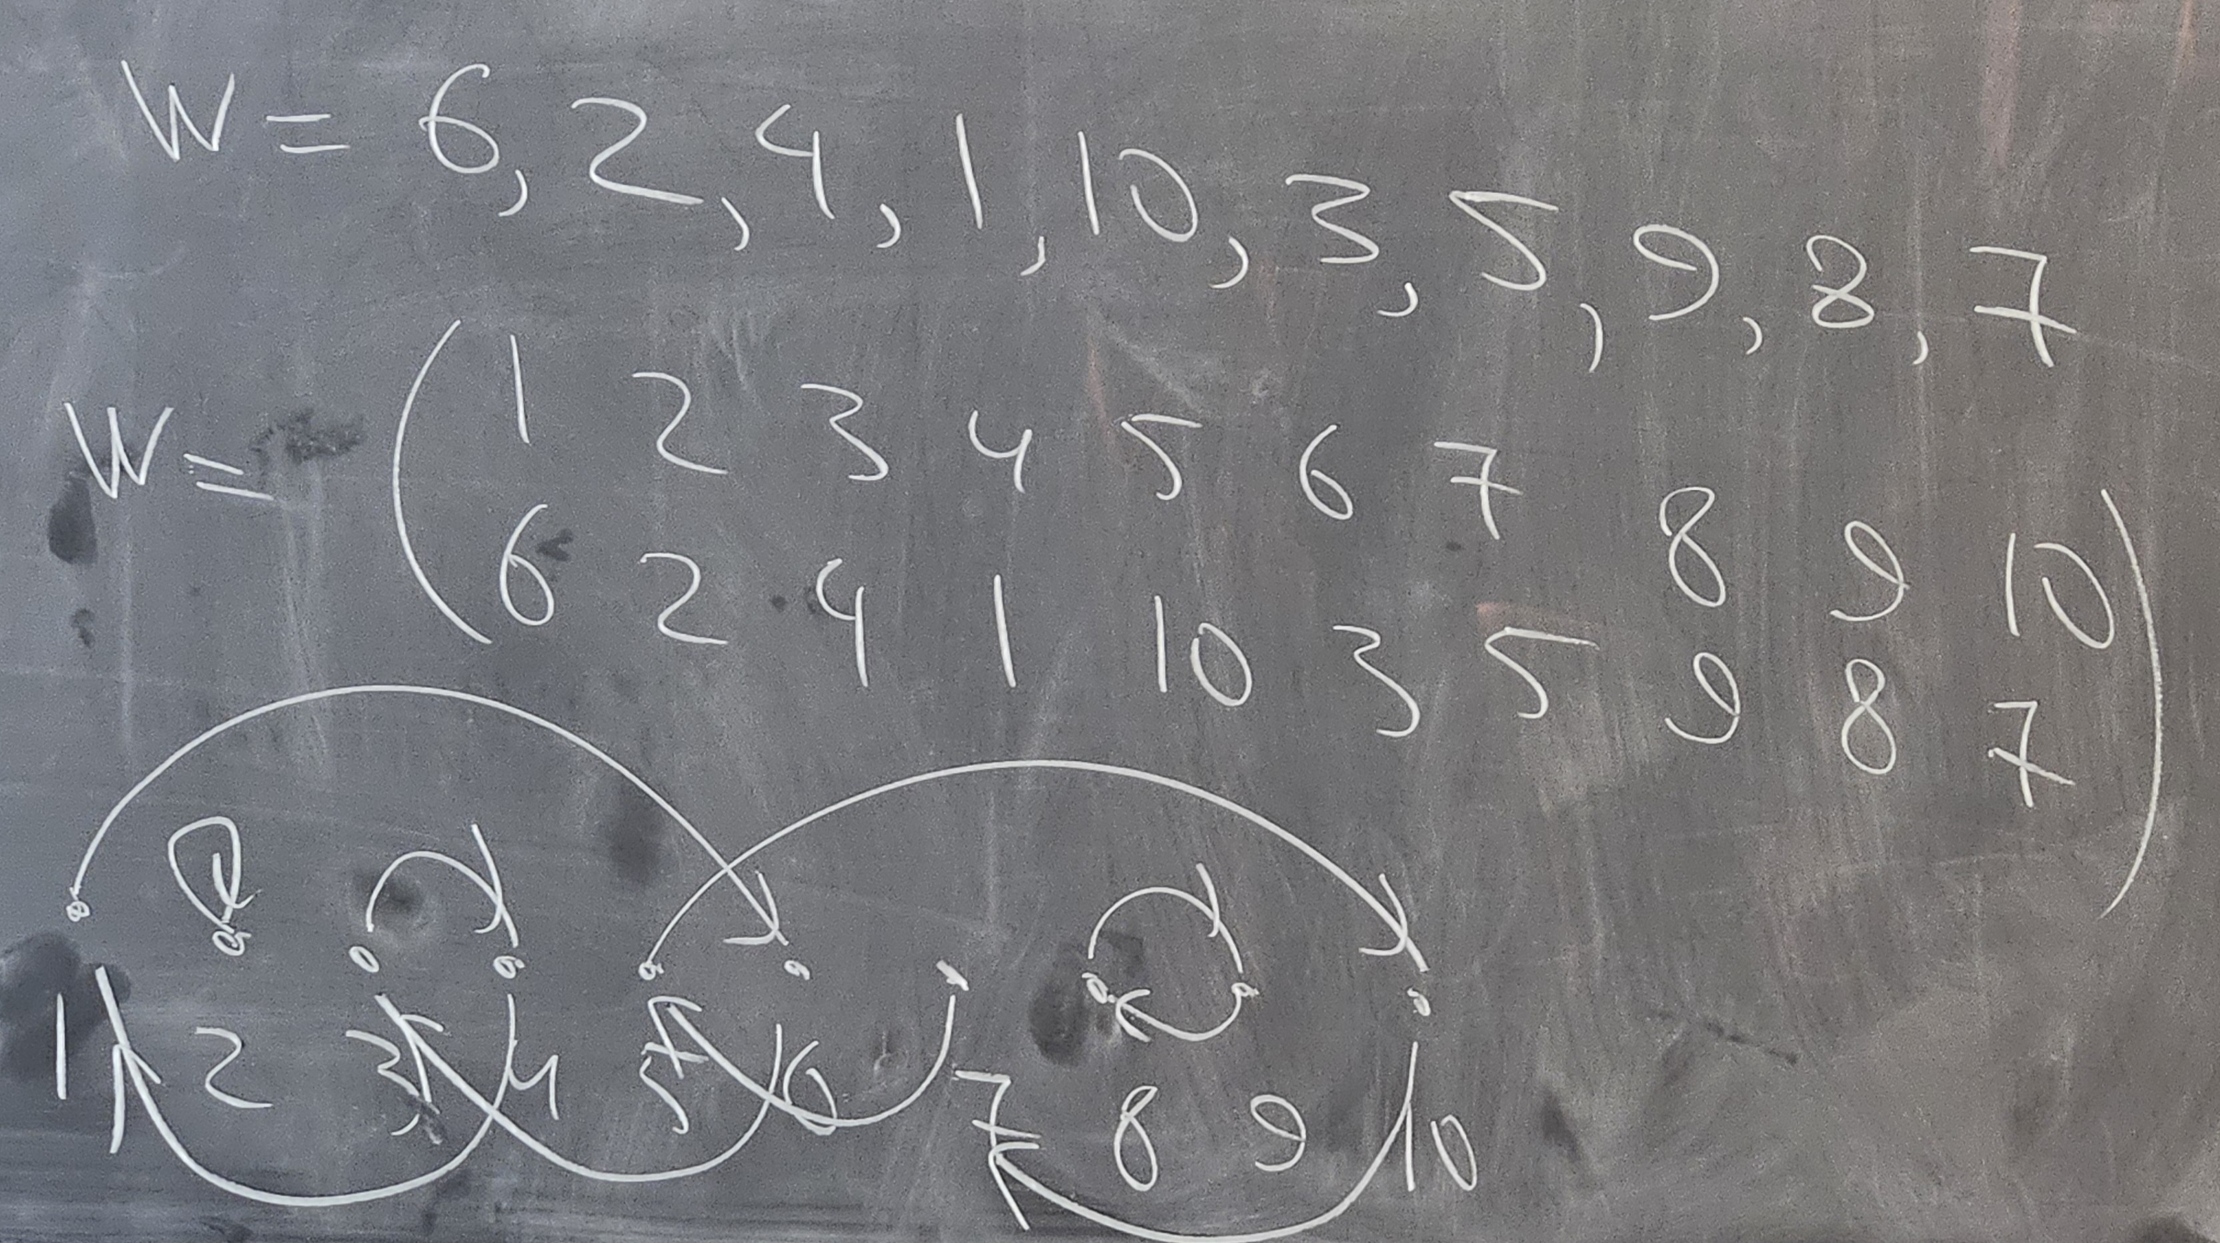 W = 6, 2, 4, 1, 10, 3, 5, 9, 8, 7
W = ( 1 2 3 4 5 6 7 8 9 10
6 2 4 1 10 3 5 9 8 7 )
1 2 3 4 5 6 7 8 9 10